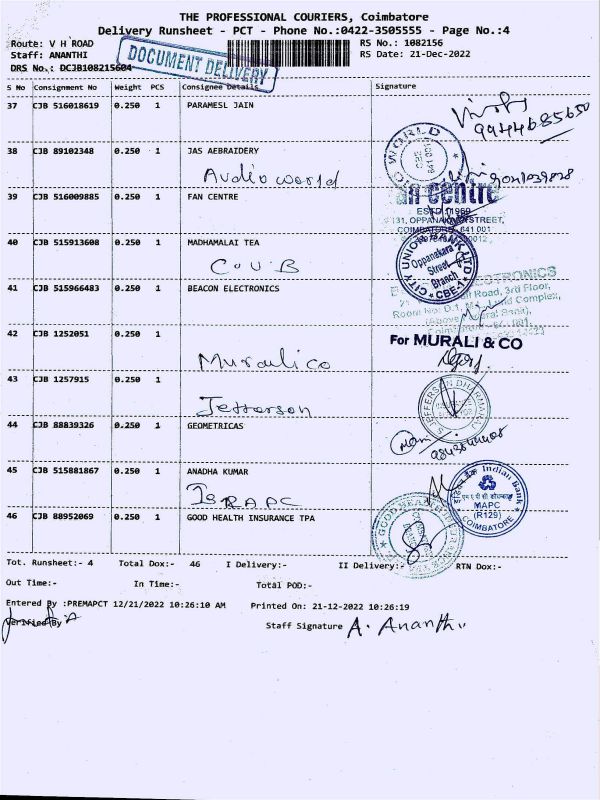 THE PROFESSIONAL COURIERS, Coimbatore
Delivery Runsheet - PCT - Phone No.:0422-3505555 - Page No.:4
Route: V H ROAD RS No.: 1082156
Staff: ANANTHI RS Date: 21-Dec-2022
DRS No.: DCJB108215604
DOCUMENT DELIVERY
S No Consignment No Weight PCS Consignee Details Signature
37 CJB 516018619 0.250 1 PARAMESL JAIN
9944685650
38 CJB 89102348 0.250 1 JAS AEBRAIDERY
Audio world
WORLD
641 001
39 CJB 516009885 0.250 1 FAN CENTRE
an centre
ESTD.1969
131, OPPANAKARA STREET,
COIMBATORE 641 001
40 CJB 515913608 0.250 1 MADHAMALAI TEA
C U B
CITY UNION BANK LTD
Oppanakara
Street
Branch
CBE-1
41 CJB 515966483 0.250 1 BEACON ELECTRONICS
ECTRONICS
Road, 3rd Floor,
Complex,
42 CJB 1252051 0.250 1
Murali co
For MURALI & CO
43 CJB 1257915 0.250 1
Jefferson
S. JEFFERSON DHARMARAJ
44 CJB 88839326 0.250 1 GEOMETRICAS
45 CJB 515881867 0.250 1 ANADHA KUMAR
MAPC
Indian Bank
MAPC
(R129)
COIMBATORE
46 CJB 88952069 0.250 1 GOOD HEALTH INSURANCE TPA
GOOD HEALTH
Tot. Runsheet:- 4 Total Dox:- 46 I Delivery:- II Delivery:- RTN Dox:-
Out Time:- In Time:- Total POD:-
Entered By :PREMAPCT 12/21/2022 10:26:10 AM Printed On: 21-12-2022 10:26:19
Verified By
Staff Signature A. Ananthi